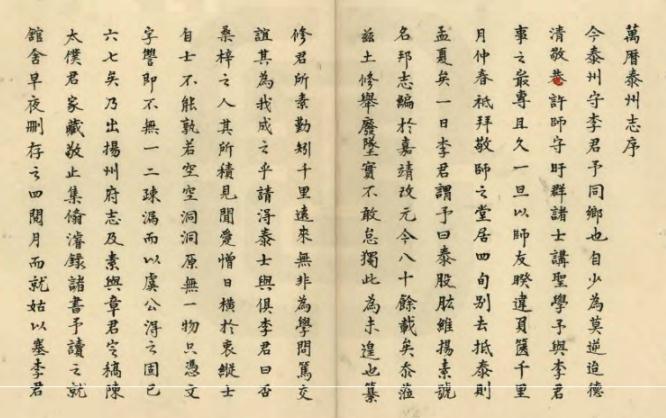 萬曆泰州志序
今泰州守李君予同鄉也自少為莫逆迨德
清敬菴許師守盱群諸士講聖學予與李君
事之最專且久一旦以師友暌違負篋千里
月仲春祗拜敬師之堂居四旬別去抵泰則
孟夏矣一日李君謂予曰泰股肱維揚素號
名邦志編於嘉靖改元今八十餘載矣泰蒞
茲土修舉廢墜實不敢怠獨此為未遑也纂
修君所素勤矧千里遠來無非為學問篤交
誼其為我成之乎請得泰士與俱李君曰否
桑梓之人其所積見聞愛憎日橫於衷縱士
自士不能孰若空空洞洞原無一物只憑文
字讐即不無一二疎漏而以虞公得之固已
六七矣乃出揚州府志及素與章君定稿陳
太僕君家藏敬止集偹濬錄諸書予讀之就
館舍早夜刪存之四閱月而就姑以塞李君